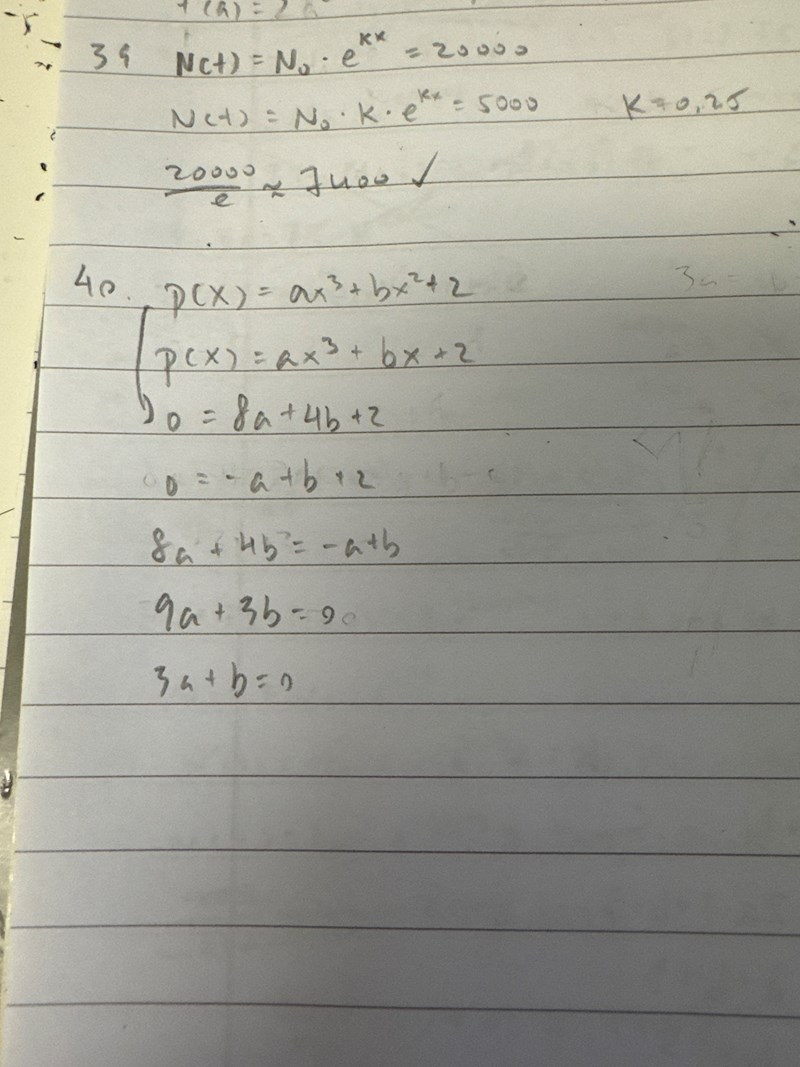 f(a) = 2a
39 N(t) = N₀ · e^kx = 20000
N(t) = N₀ · k · e^kx = 5000 K = 0,25
20000/e ≈ 7400 ✓
40. p(x) = ax³ + bx² + 2 3a =
p(x) = ax³ + bx + 2
0 = 8a + 4b + 2
0 = -a + b + 2
8a + 4b = -a + b
9a + 3b = 0
3a + b = 0